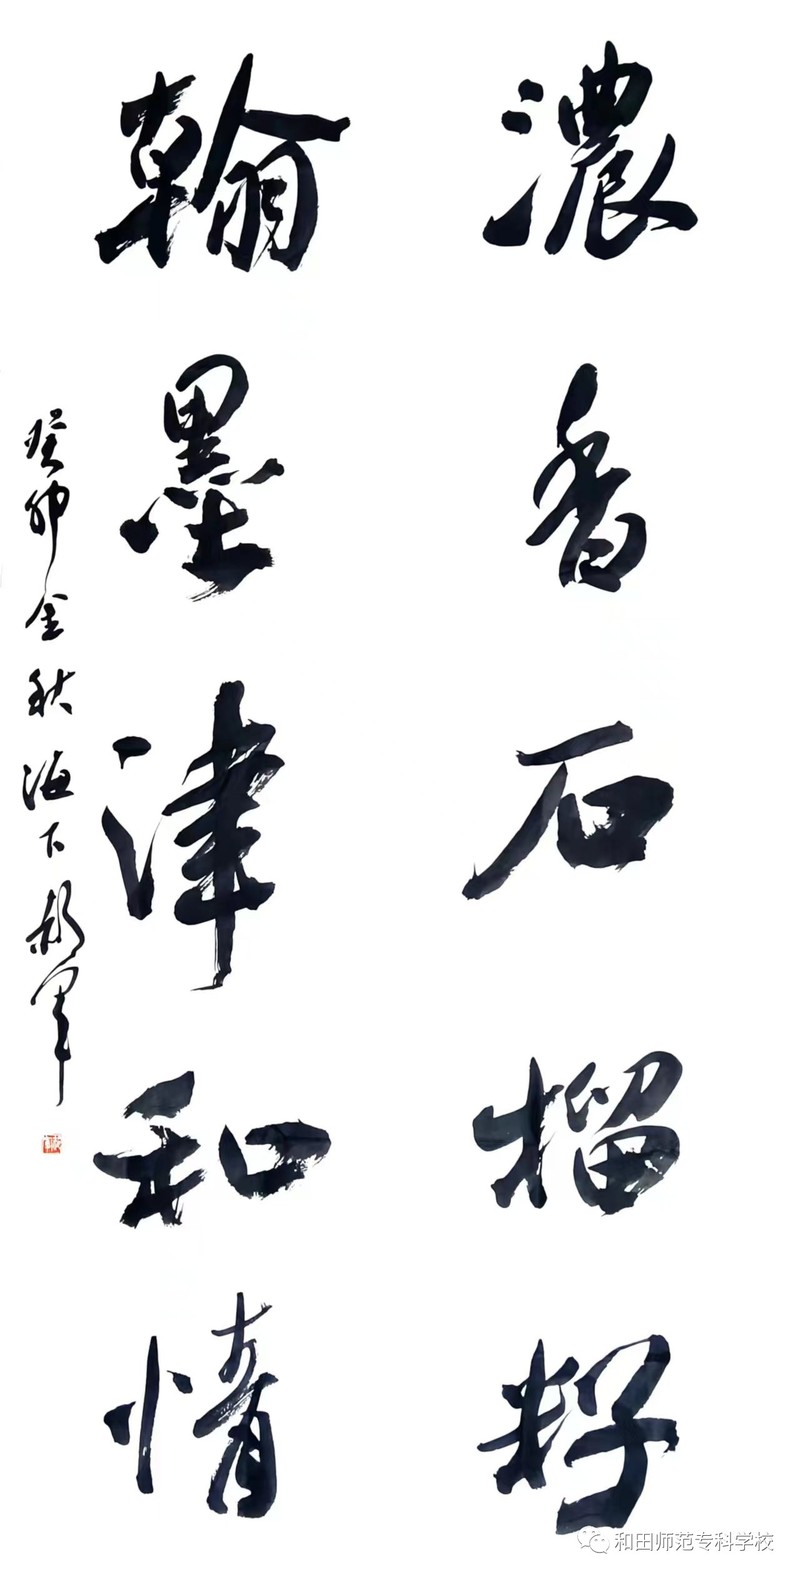 濃香石榴籽
翰墨津和情
癸卯金秋海下郝军
和田师范专科学校